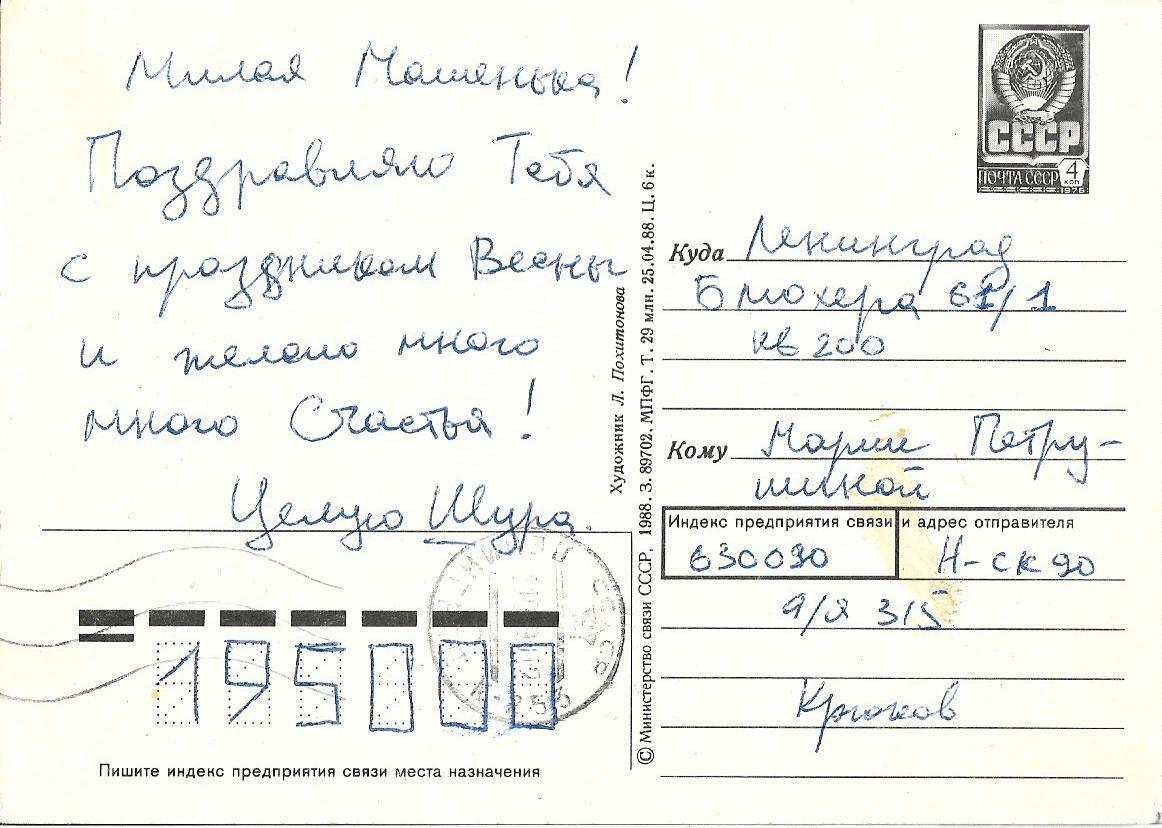 Милая Машенька!
Поздравляю Тебя
с праздником Весны
и желаю много
много Счастья!
Целую Шура.
195000
Пишите индекс предприятия связи места назначения
Художник Л. Похитонова
© Министерство связи СССР, 1988. З. 89702. МПФГ. Т. 29 млн. 25.04.88. Ц. 6 к.
СССР
ПОЧТА СССР 4 коп
1976
Куда Ленинград
Блюхера 61/1
кв 200
Кому Марии Петру-
шиной
Индекс предприятия связи и адрес отправителя
630090 Н-ск 90
а/я 315
Крюков